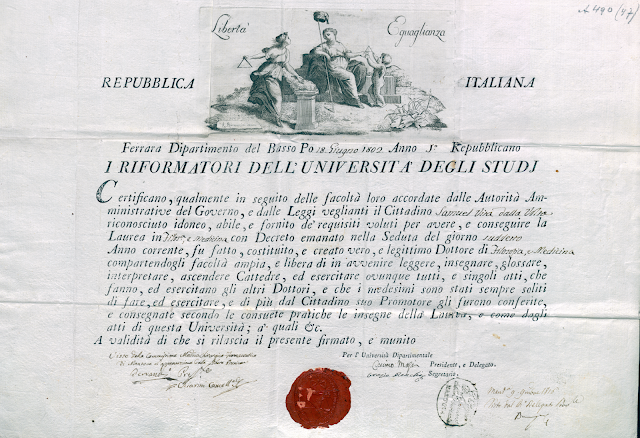 A 490 (47)
Libertà Eguaglianza
REPUBBLICA ITALIANA
Ferrara Dipartimento del Basso Po 18. Giugno 1802 Anno I° Repubblicano
I RIFORMATORI DELL'UNIVERSITA' DEGLI STUDJ
Certificano, qualmente in seguito delle facoltà loro accordate dalle Autorità Am-
ministrative del Governo, e dalle Leggi veglianti il Cittadino Samuel Vita dalla Volta
riconosciuto idoneo, abile, e fornito de' requisiti voluti per avere, e conseguire la
Laurea in Filos.a e Medicina con Decreto emanato nella Seduta del giorno sudetto
Anno corrente, fu fatto, costituito, e creato vero, e legittimo Dottore di Filosofia, e Medicina
compartendogli facoltà ampia, e libera di in avvenire leggere, insegnare, glossare,
interpretare, ascendere Cattedre, ed esercitare ovunque tutti, e singoli atti, che
fanno, ed esercitano gli altri Dottori, e che i medesimi sono stati sempre soliti
di fare, ed esercitare, e di più dal Cittadino suo Promotore gli furono conferite,
e consegnate secondo le consuete pratiche le insegne della Laurea, e come dagli
atti di questa Università; a' quali &c.
A validità di che si rilascia il presente firmato, e munito
Per l' Università Dipartimentale
Presidente, e Delegato.
Segretario.